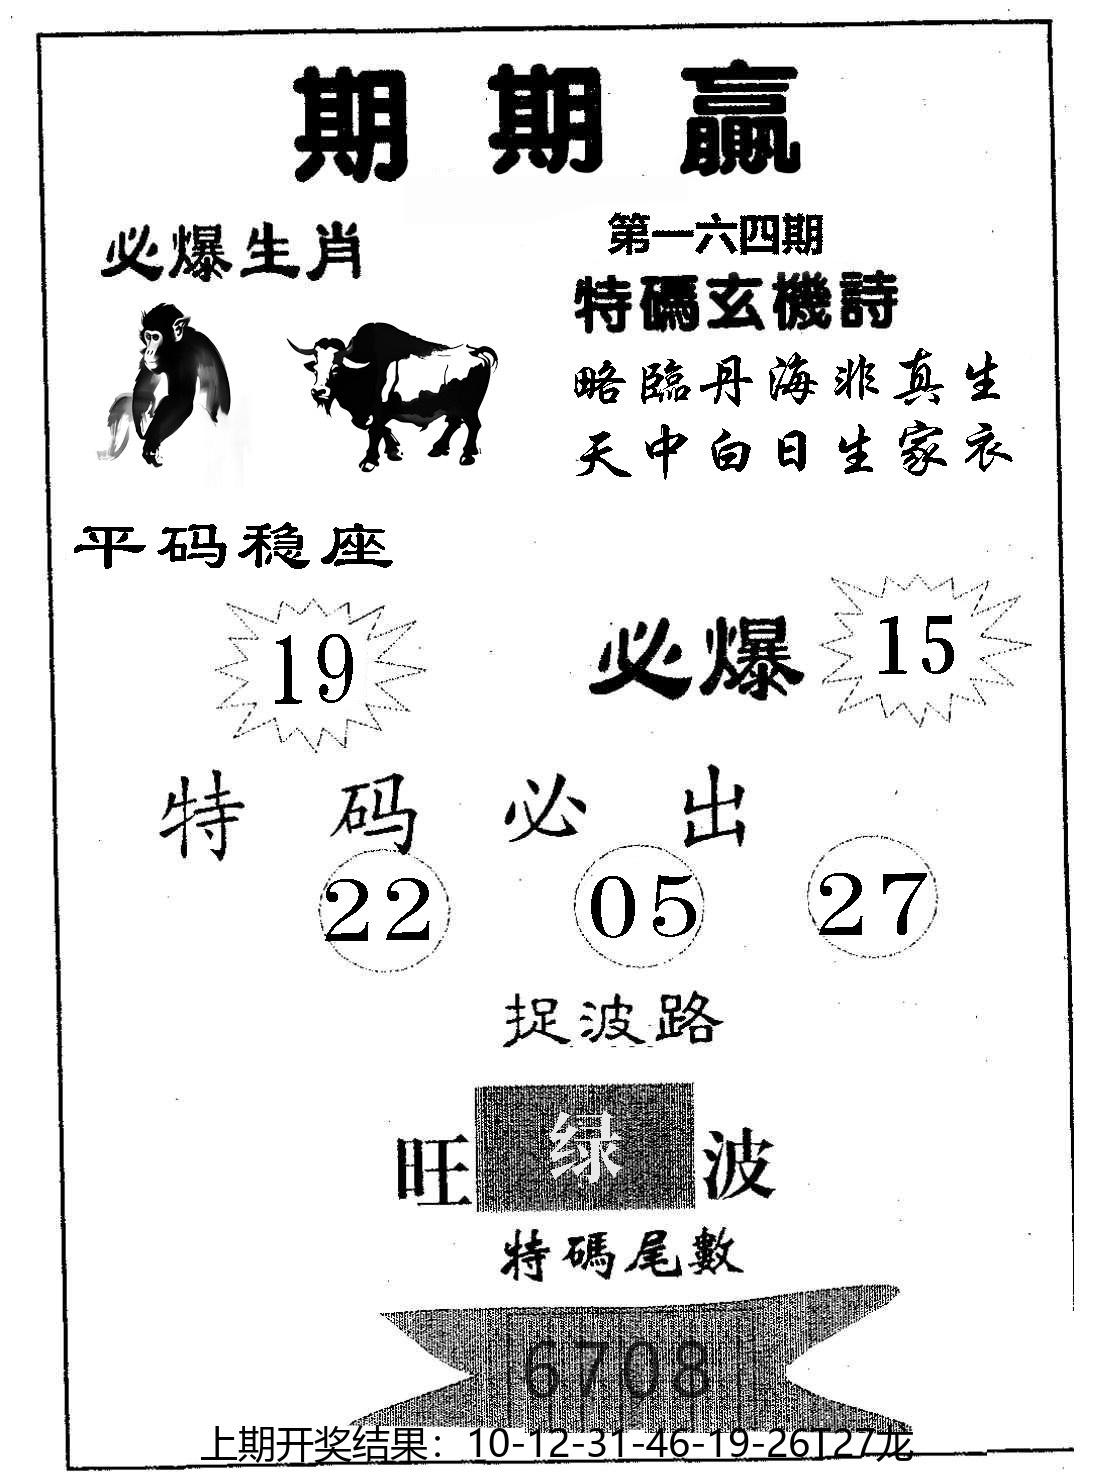 期期贏
必爆生肖
第一六四期
特碼玄機詩
略臨丹海非真生
天中白日生家衣
平码稳座
19
必爆 15
特码必出
22 05 27
捉波路
旺 绿 波
特碼尾數
6708
上期开奖结果：10-12-31-46-19-26T27龙